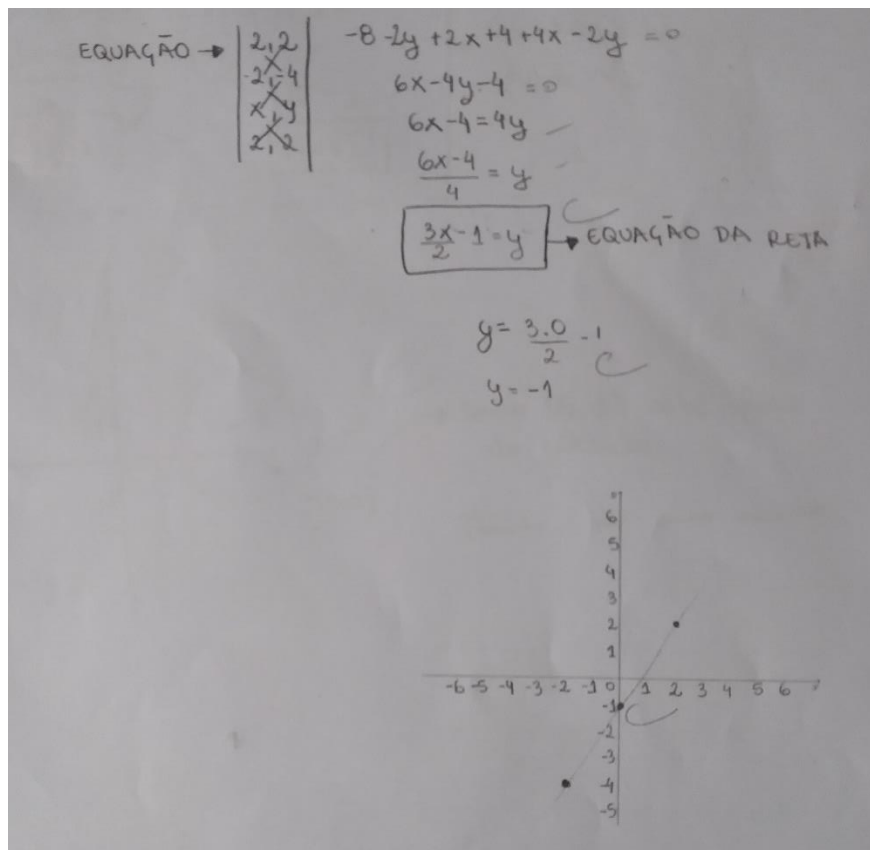 EQUAÇÃO → | 2, 2 |
| -2, -4 |
| x, y |
| 2, 2 |
-8 -2y +2x +4 +4x -2y = 0
6x-4y-4 = 0
6x-4=4y
6x-4/4 = y
3x/2 - 1 = y → EQUAÇÃO DA RETA
y = 3.0/2 - 1
y = -1
6
5
4
3
2
1
-6 -5 -4 -3 -2 -1 0 1 2 3 4 5 6
-1
-2
-3
-4
-5